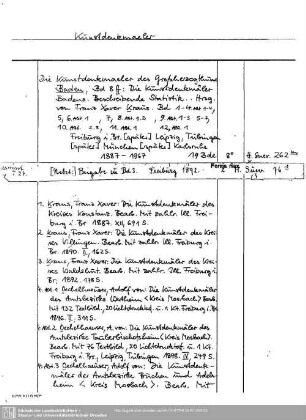 Kunstdenkmaeler
Die Kunstdenkmaeler des Großherzogthums
Baden. Bd 8 ff: Die Kunstdenkmäler
Badens. Beschreibende Statistik... Hrsg.
von Franz Xaver Kraus. Bd 1-4
5, 6, 7, 8, 9
10, 11, 12
Freiburg i. Br. [später] Leipzig, Tübingen
[später] München [später] Karlsruhe
1887 - 1967 19 Bde 8°
Beigabe zu Bd 3. Freiburg 1892.
1. Kraus, Franz Xaver: Die Kunstdenkmäler des
Kreises Konstanz. Bearb. Mit zahlr. Ill. Frei-
burg i. Br. 1887. XII, 691 S.
2. Kraus, Franz Xaver: Die Kunstdenkmäler des Krei-
ses Villingen. Bearb. Mit zahlr. Ill. Freiburg i.
Br. 1890. 162 S.
3. Kraus, Franz Xaver: Die Kunstdenkmäler des Krei-
ses Waldshut. Bearb. Mit zahlr. Ill. Freiburg i.
Br. 1892. 178 S.
4. Abt. 1 Oechelhäuser, Adolf von: Die Kunstdenkmäler
des Amtsbezirks Wertheim (Kreis Mosbach). Bearb.
Mit 132 Textbild, 20 Lichtdrucktaf. u. 1 Kt. Freiburg i. Br.
1896. 315 S.
4. Abt. 2 Oechelhäuser, A. von: Die Kunstdenkmäler des
Amtsbezirks Tauberbischofsheim (Kreis Mosbach).
Bearb. Mit 76 Textbild, 20 Lichtdrucktaf. u. 1 Kt.
Freiburg i. Br., Leipzig, Tübingen 1898. IV, 249 S.
4. Abt. 3 Oechelhäuser, Adolf von: Die Kunstdenk-
mäler der Amtsbezirke Buchen und Adels-
heim (Kreis Mosbach). Bearb. Mit